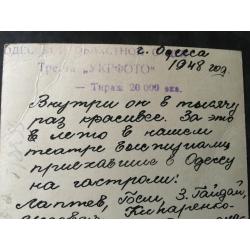 г. Одесса
1948 год.
Трест "УКРФОТО"
— Тираж 20 000 экз.
Внутри он в тысячу
раз красивее. За это
в лето в нашем
театре выступали
приехавшие в Одессу
на гастроли:
Лаптев, Бем, З. Гайдай,
Кипаренко-